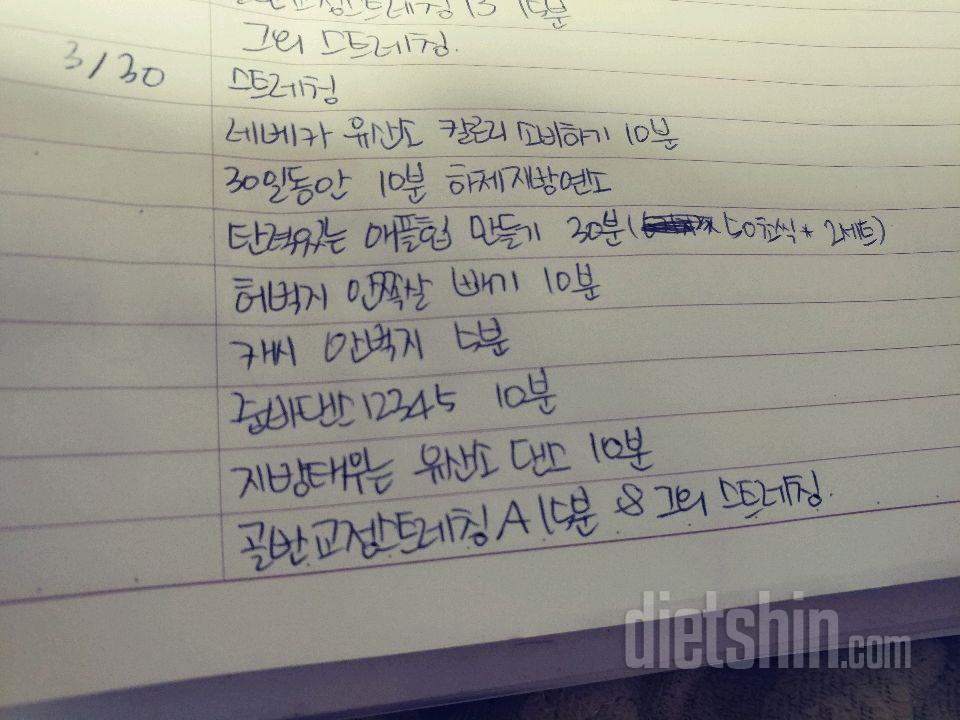 교정스트레칭 B 15분
그외 스트레칭.
3/30 스트레칭
레베카 유산소 칼로리 소비하기 10분
30일동안 10분 하체지방연소
탄력있는 애플힙 만들기 30분( 50초씩* 2세트)
허벅지 안쪽살 빼기 10분
캐시 안벅지 5분
줌바댄스12345 10분
지방태우는 유산소 댄스 10분
골반교정스트레칭 A 15분 & 그외 스트레칭.
dietshin.com